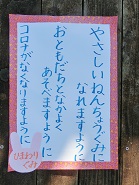 やさしいねんちょうぐみに
なれますように
おともだちとなかよく
あそべますように
コロナがなくなりますように
ひまわりぐみ